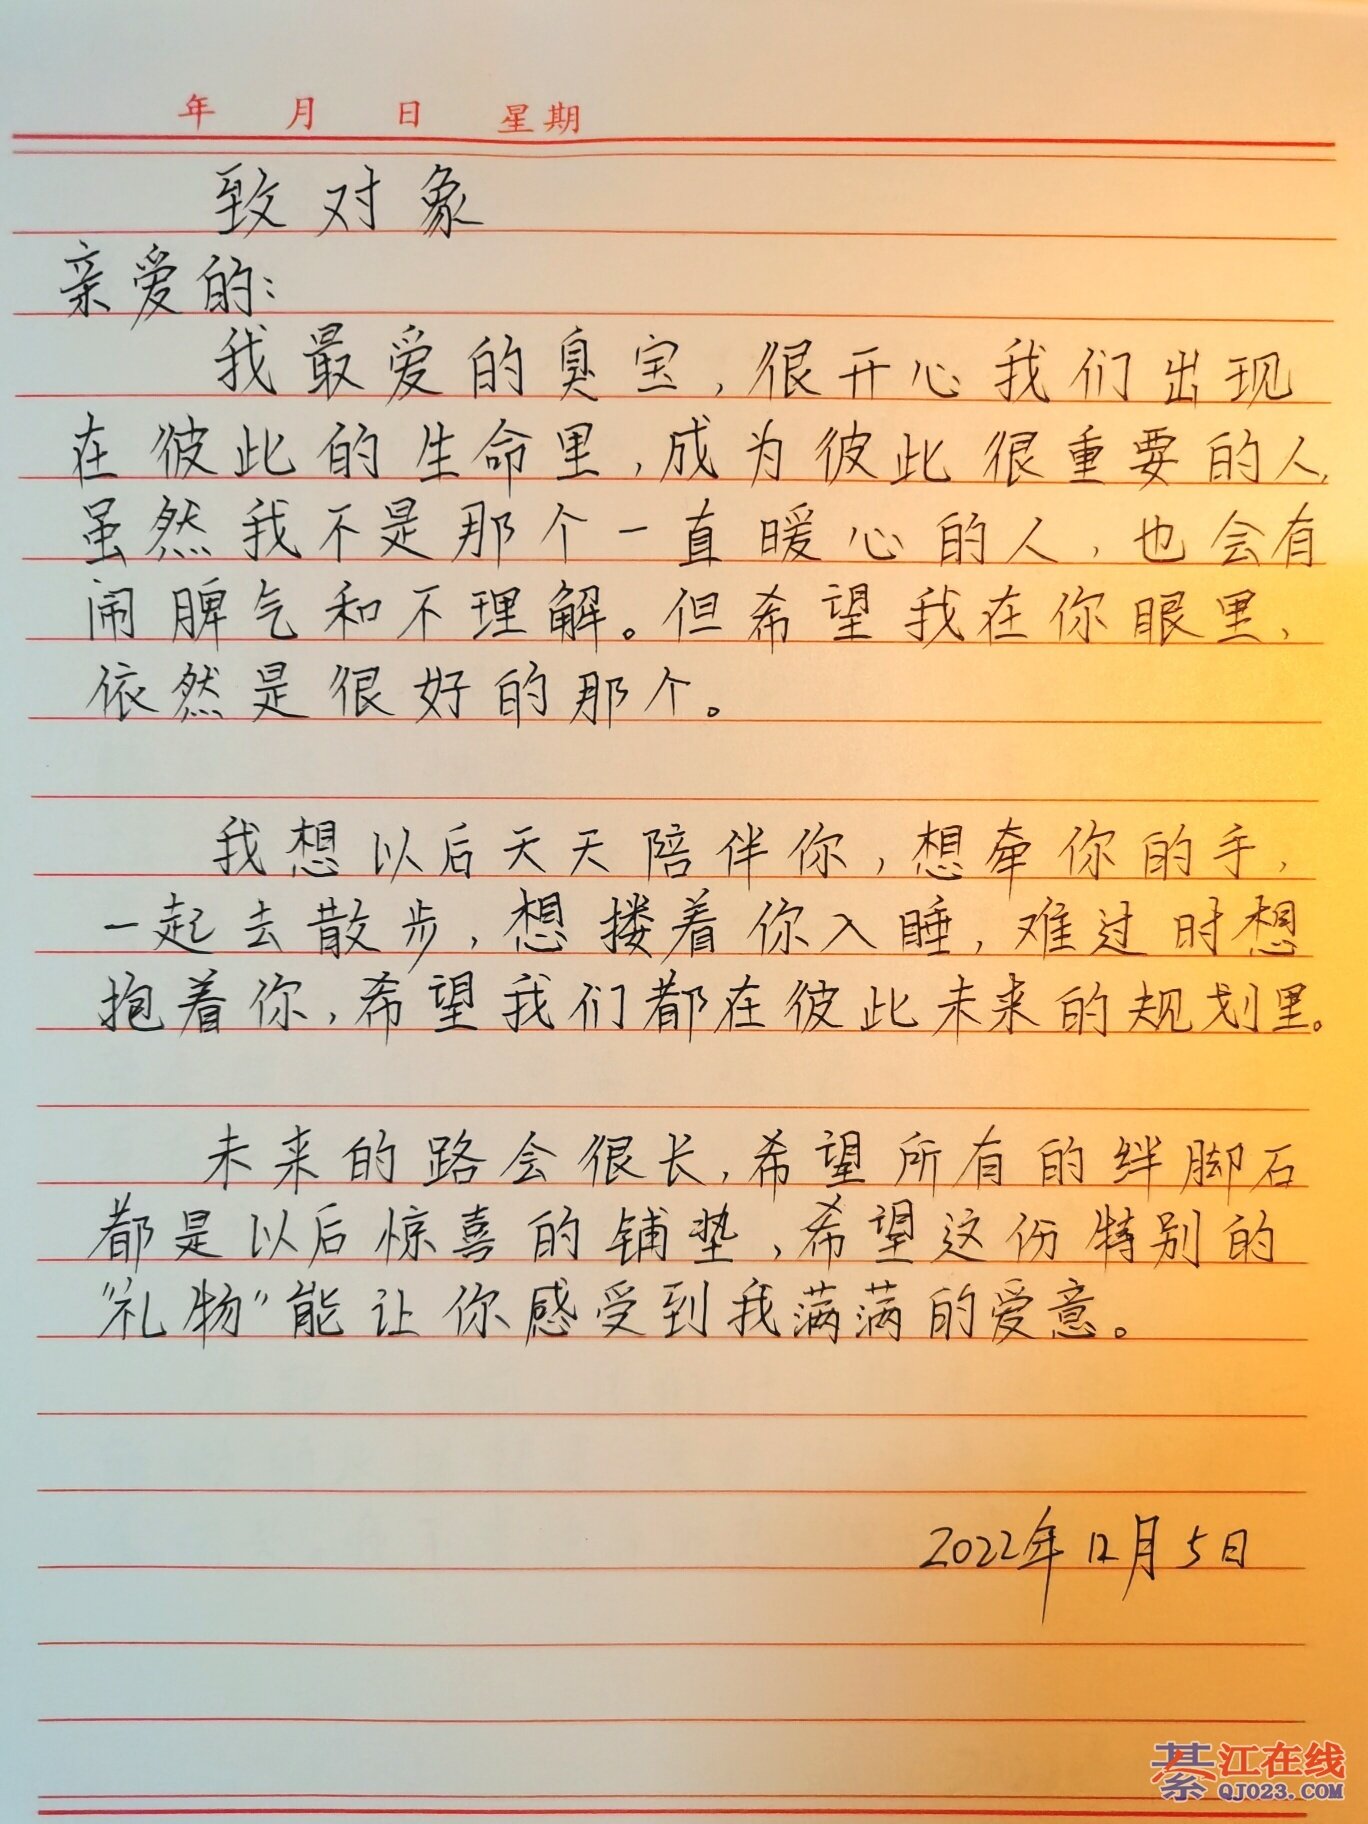 年 月 日 星期
致对象
亲爱的:
我最爱的臭宝,很开心我们出现
在彼此的生命里,成为彼此很重要的人,
虽然我不是那个一直暖心的人,也会有
闹脾气和不理解。但希望我在你眼里,
依然是很好的那个。
我想以后天天陪伴你,想牵你的手,
一起去散步,想搂着你入睡,难过时想
抱着你,希望我们都在彼此未来的规划里。
未来的路会很长,希望所有的绊脚石
都是以后惊喜的铺垫,希望这份特别的
"礼物"能让你感受到我满满的爱意。
2022年12月5日
綦江在线
QJ023.COM